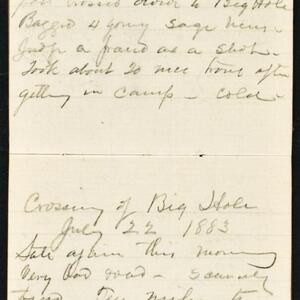 crossed down to Big Hole
Bagged 4 young sage hens.
Judge a grand as a shot.
Took about 20 nice trout after
getting in camp - Cold -
Crossing of Big Hole
July 22 1883
Late again this morning
Very bad road - Scarcely